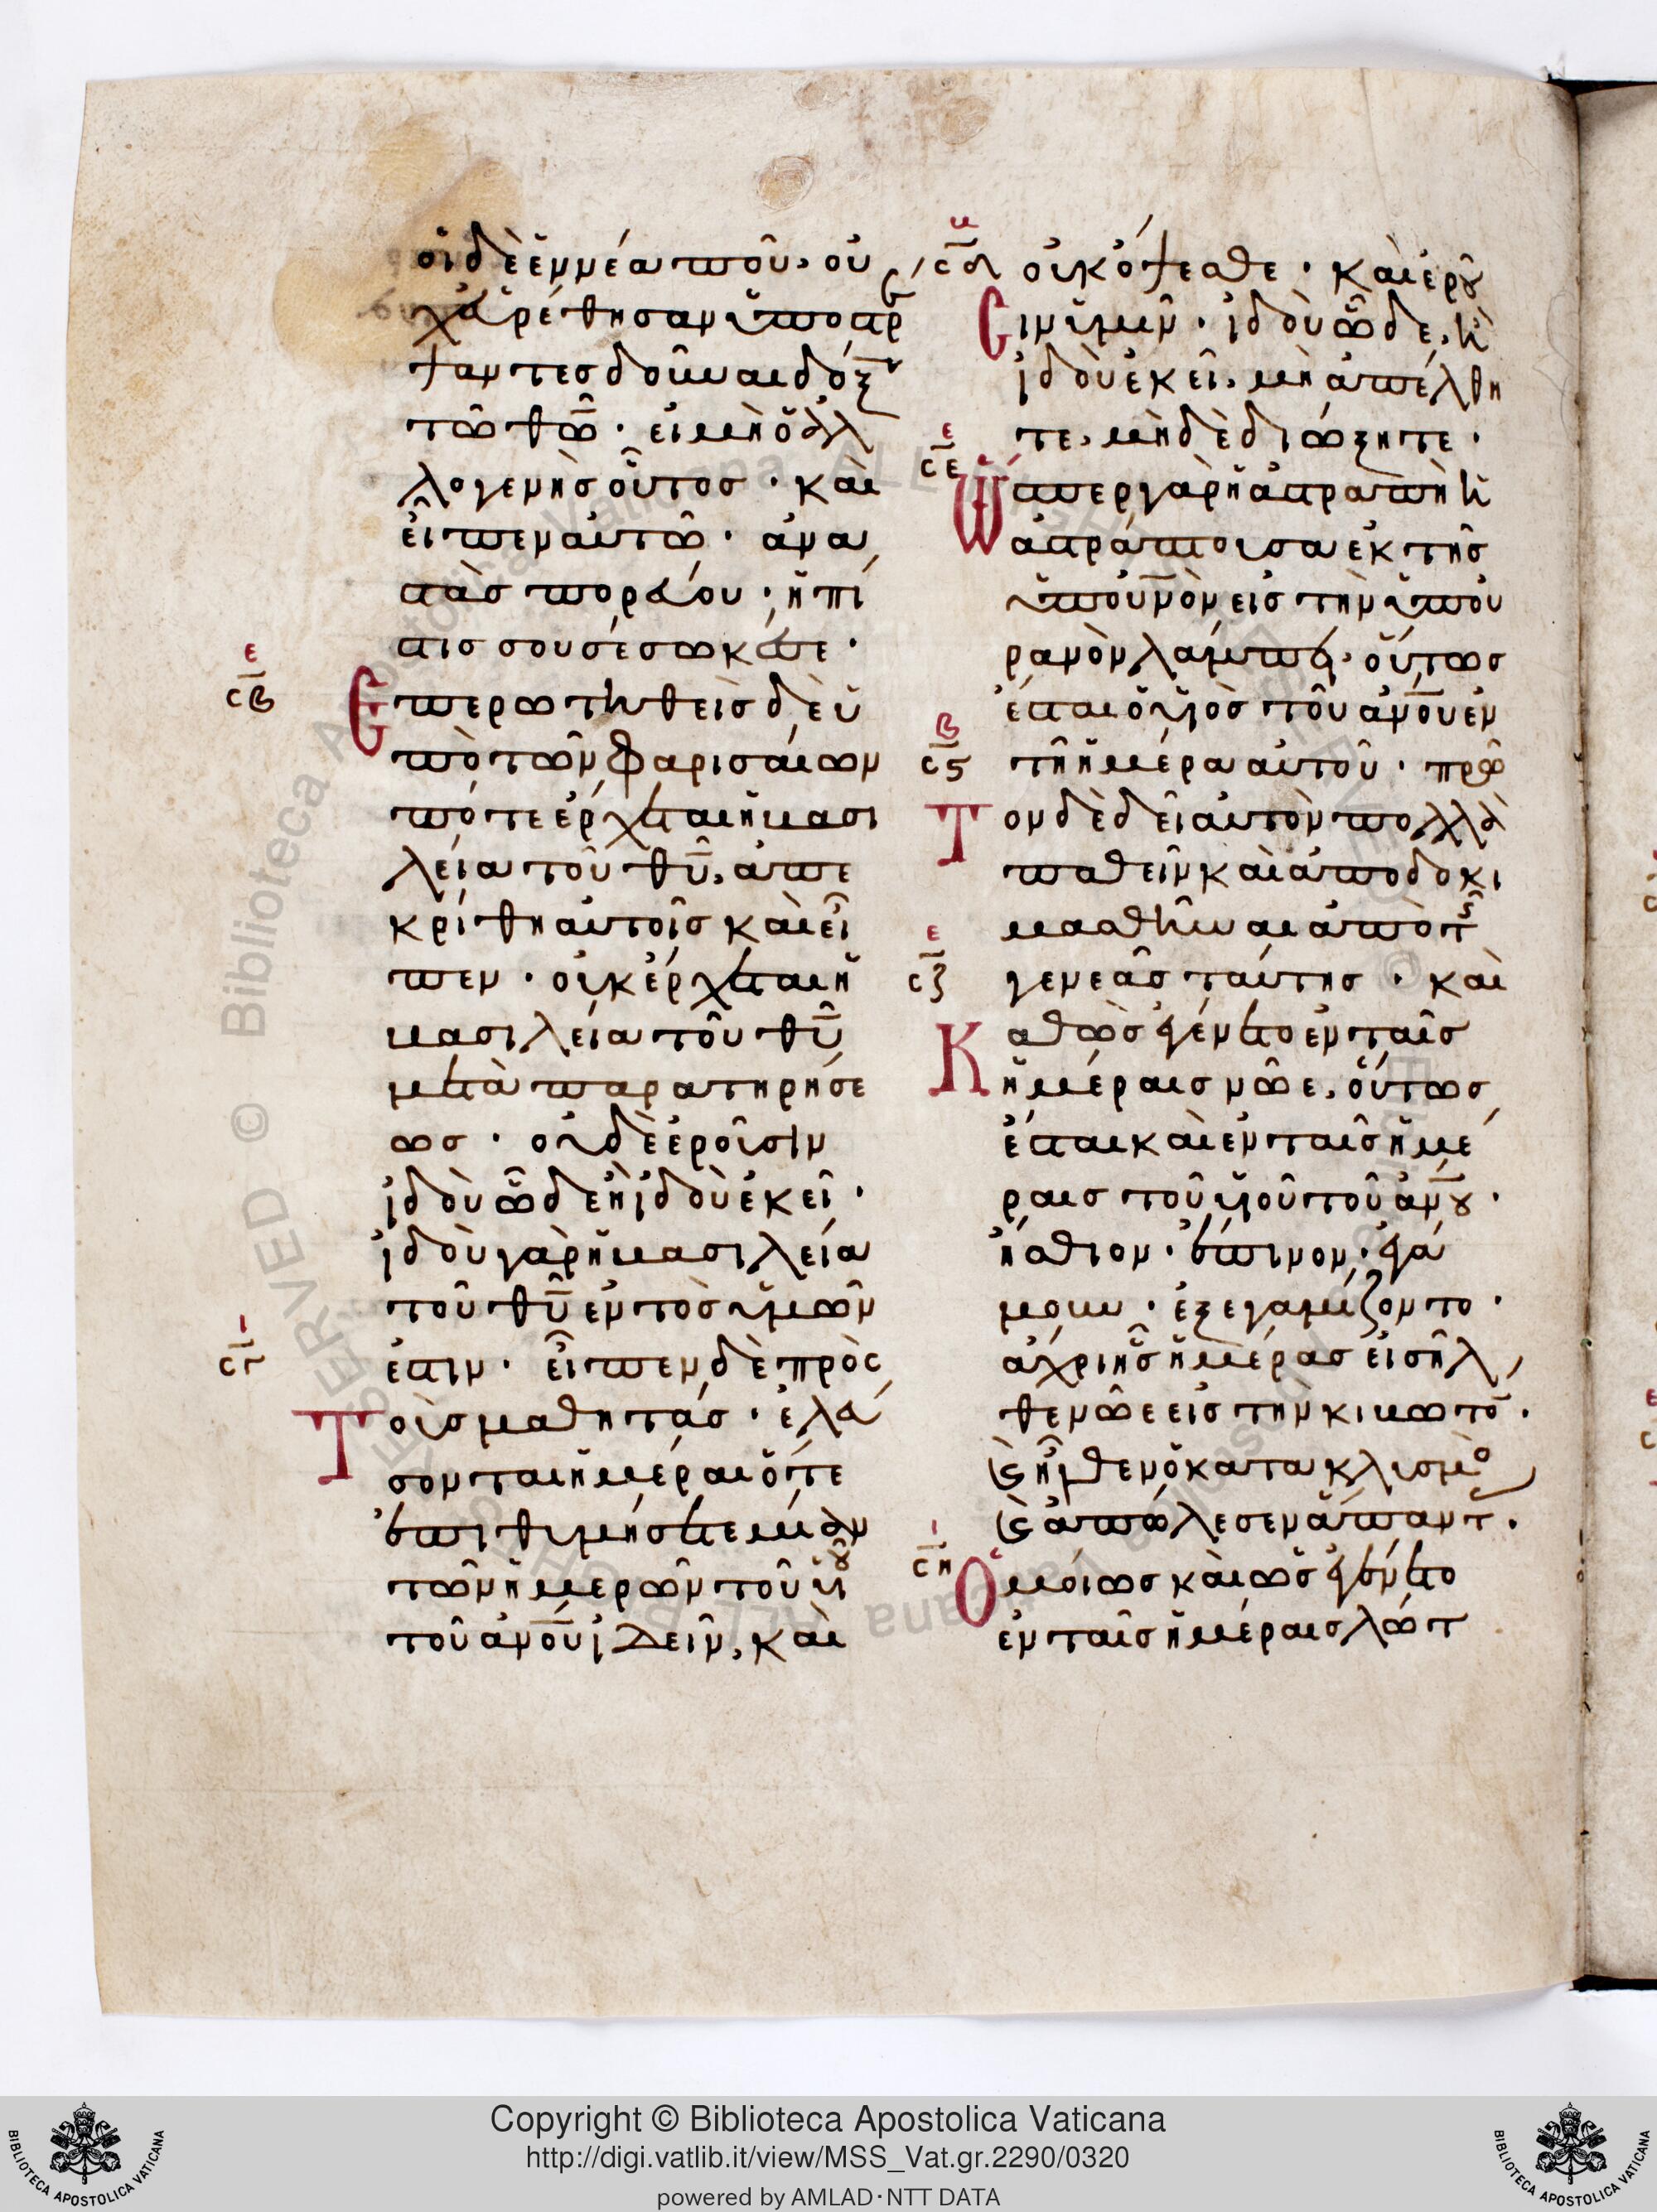 οἱ δὲ ἐννέα ποῦ, οὐ
χ εὑρέθησαν ὑποστρέ
ψαντες δοῦναι δόξ
τῶ θω̅· εἰ μὴ ὁ ἀλ
λογενὴς οὗτος· καὶ
εἶπεν αὐτῶ· ἀνα
στὰς πορεύου· ἡ πί
στις σου σέσωκέ σε·
ε
σβ
Ἐπερωτηθεὶς δὲ ὑ
πὸ τῶν φαρισαίων
πότε ἔρχεται ἡ βασι
λεία τοῦ θυ̅, ἀπε
κρίθη αὐτοῖς καὶ εἶ
πεν· οὐκ ἔρχεται ἡ
βασιλεία τοῦ θυ̅
μετὰ παρατηρήσε
ως· οὐδὲ ἐροῦσιν
ἰδοὺ ὧδε ἢ ἰδοὺ ἐκεῖ·
ἰδοὺ γὰρ ἡ βασιλεία
τοῦ θυ̅ ἐντὸς ὑμῶν
σγ
ἐστιν· εἶπεν δὲ πρὸς
Τοὺς μαθητάς· ἐλεύ
σονται ἡμέραι ὅτε
ἐπιθυμήσετε μίαν
τῶν ἡμερῶν τοῦ υἱοῦ
τοῦ ἀνο̅υ ἰδεῖν, καὶ
σδ
οὐκ ὄψεσθε· καὶ ἐροῦ
Σιν ὑμῖν· ἰδοὺ ὧδε, κ
ἰδοὺ ἐκεῖ, μὴ ἀπέλθη
τε, μηδὲ διώξητε·
ε
σε
Ὥσπερ γὰρ ἡ ἀστραπὴ κ
ἀστράπτουσα ἐκ τῆς
ὑπ' οὐ̅νὸν εἰς τὴν ὑπ' οὐ
ρανὸν λάμπει, οὕτως
ἔσται ὁ υἱὸς τοῦ ἀνο̅υ ἐν
β
σϛ
τῆ ἡμέρα αὐτοῦ· πρῶ
Τον δὲ δεῖ αὐτὸν πολλὰ
παθεῖν καὶ ἀποδοκι
μασθῆναι ἀπὸ τῆς
ε
σζ
γενεᾶς ταύτης· καὶ
Καθὼς ἐγένετο ἐν ταῖς
ἡμέραις νῶε, οὕτως
ἔσται καὶ ἐν ταῖς ἡμέ
ραις τοῦ υἱοῦ τοῦ ἀνο̅υ·
ἤσθιον· ἔπινον· ἐγά
μουν· ἐξεγαμίζοντο·
ἄχρι ἧς ἡμέρας εἰσῆλ
θε νῶε εἰς τὴν κιβωτο̅·
κ ἦλθεν ὁ κατακλυσμὸ
κ ἀπώλεσεν ἅπαντ·
ι
ση
Ὁμοίως καὶ ὡς ἐγένετο
ἐν ταῖς ἡμέραις λώτ
© Biblioteca Apostolica Vaticana
Copyright © Biblioteca Apostolica Vaticana
http://digi.vatlib.it/view/MSS_Vat.gr.2290/0320
powered by AMLAD·NTT DATA
BIBLIOTECA APOSTOLICA VATICANA
BIBLIOTECA APOSTOLICA VATICANA